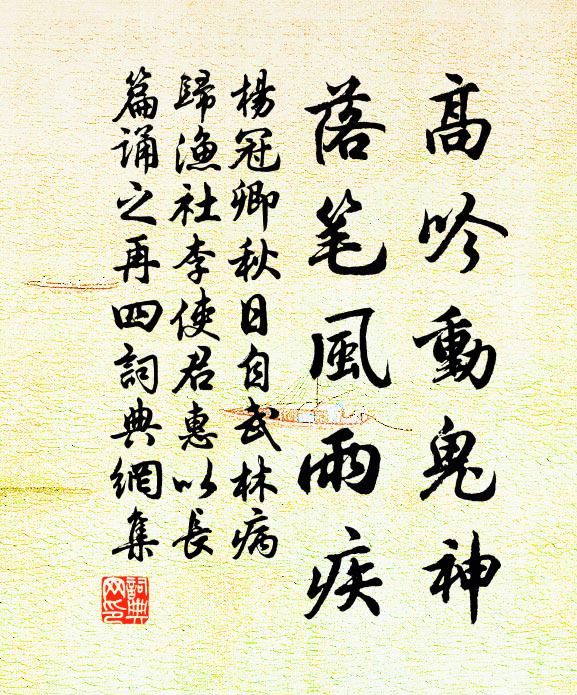 高吟動鬼神
落笔風雨疾
楊冠卿秋日自武林病
歸漁社李使君惠以長
篇诵之再四詞典網集
詞典网印